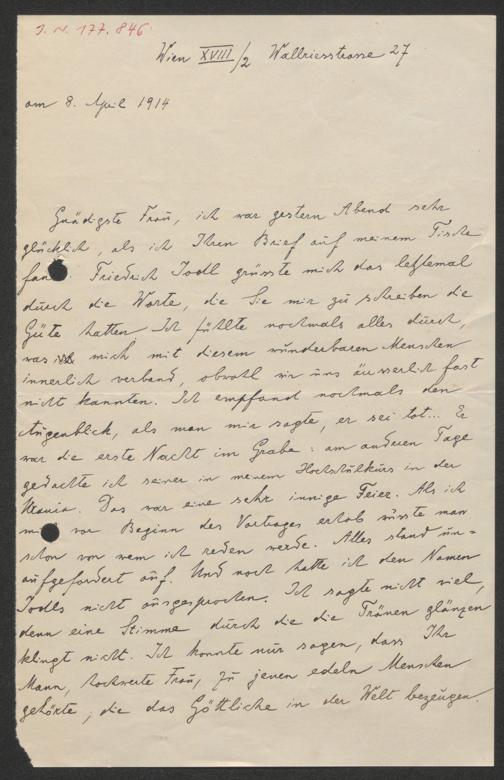 J. N. 177.846
Wien XVIII/2 Wallriesstrasse 27
am 8. April 1914
Gnädigste Frau, ich war gestern Abend sehr
glücklich, als ich Ihren Brief auf meinem Tische
fand. Friedrich Jodl grüsste mich das letztemal
durch die Worte, die Sie mir zu schreiben die
Güte hatten. Ich fühlte nochmals alles durch,
was mich mit diesem wunderbaren Menschen
innerlich verband, obwohl wir uns äusserlich fast
nicht kannten. Ich empfand nochmals den
Augenblick, als man mir sagte, er sei tot... Er
war die erste Nacht im Grabe: am anderen Tage
gedachte ich seiner in meinem Hochschulkurs in der
Urania. Das war eine sehr innige Feier. Als ich
mich vor Beginn des Vortrages erhob wusste man
schon von wem ich reden werde. Alles stand un-
aufgefordert auf. Und noch hatte ich den Namen
Jodls nicht ausgesprochen. Ich sagte nicht viel,
denn eine Stimme durch die die Tränen glänzen
klingt nicht. Ich konnte nur sagen, dass Ihr
Mann, hochwerte Frau, zu jenen edeln Menschen
gehörte, die das Göttliche in der Welt bezeugen.